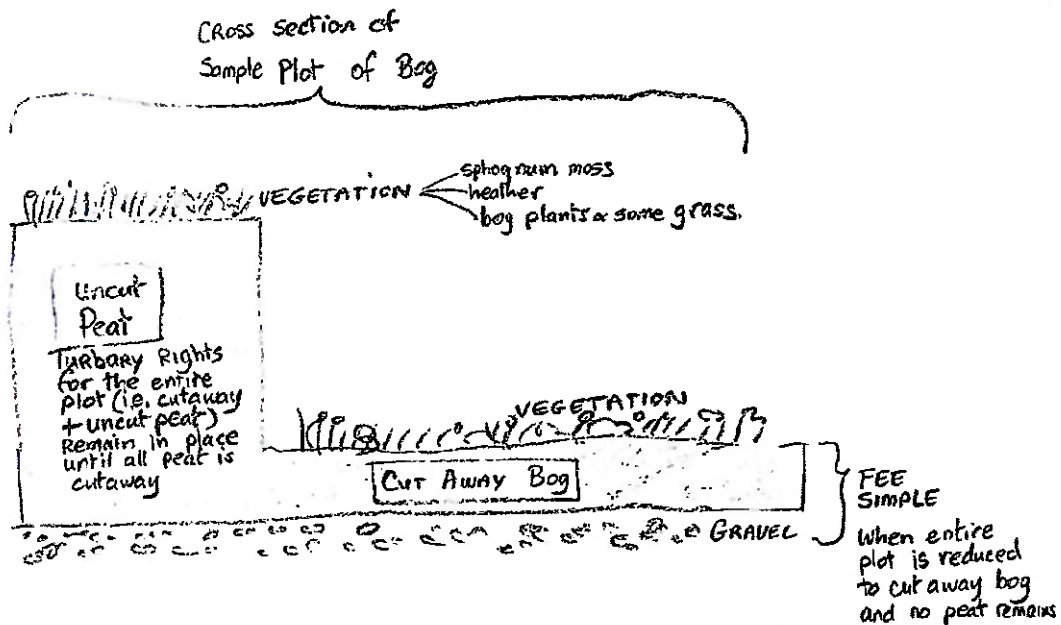 CROSS section of
Sample Plot of Bog
VEGETATION
sphognum moss
heather
bog plants & some grass.
Uncut
Peat
TURBARY Rights
for the entire
plot (i.e. cutaway
+ uncut peat)
Remain in place
until all peat is
cutaway
VEGETATION
CUT AWAY Bog
GRAVEL
FEE
SIMPLE
When entire
plot is reduced
to cut away bog
and no peat remains